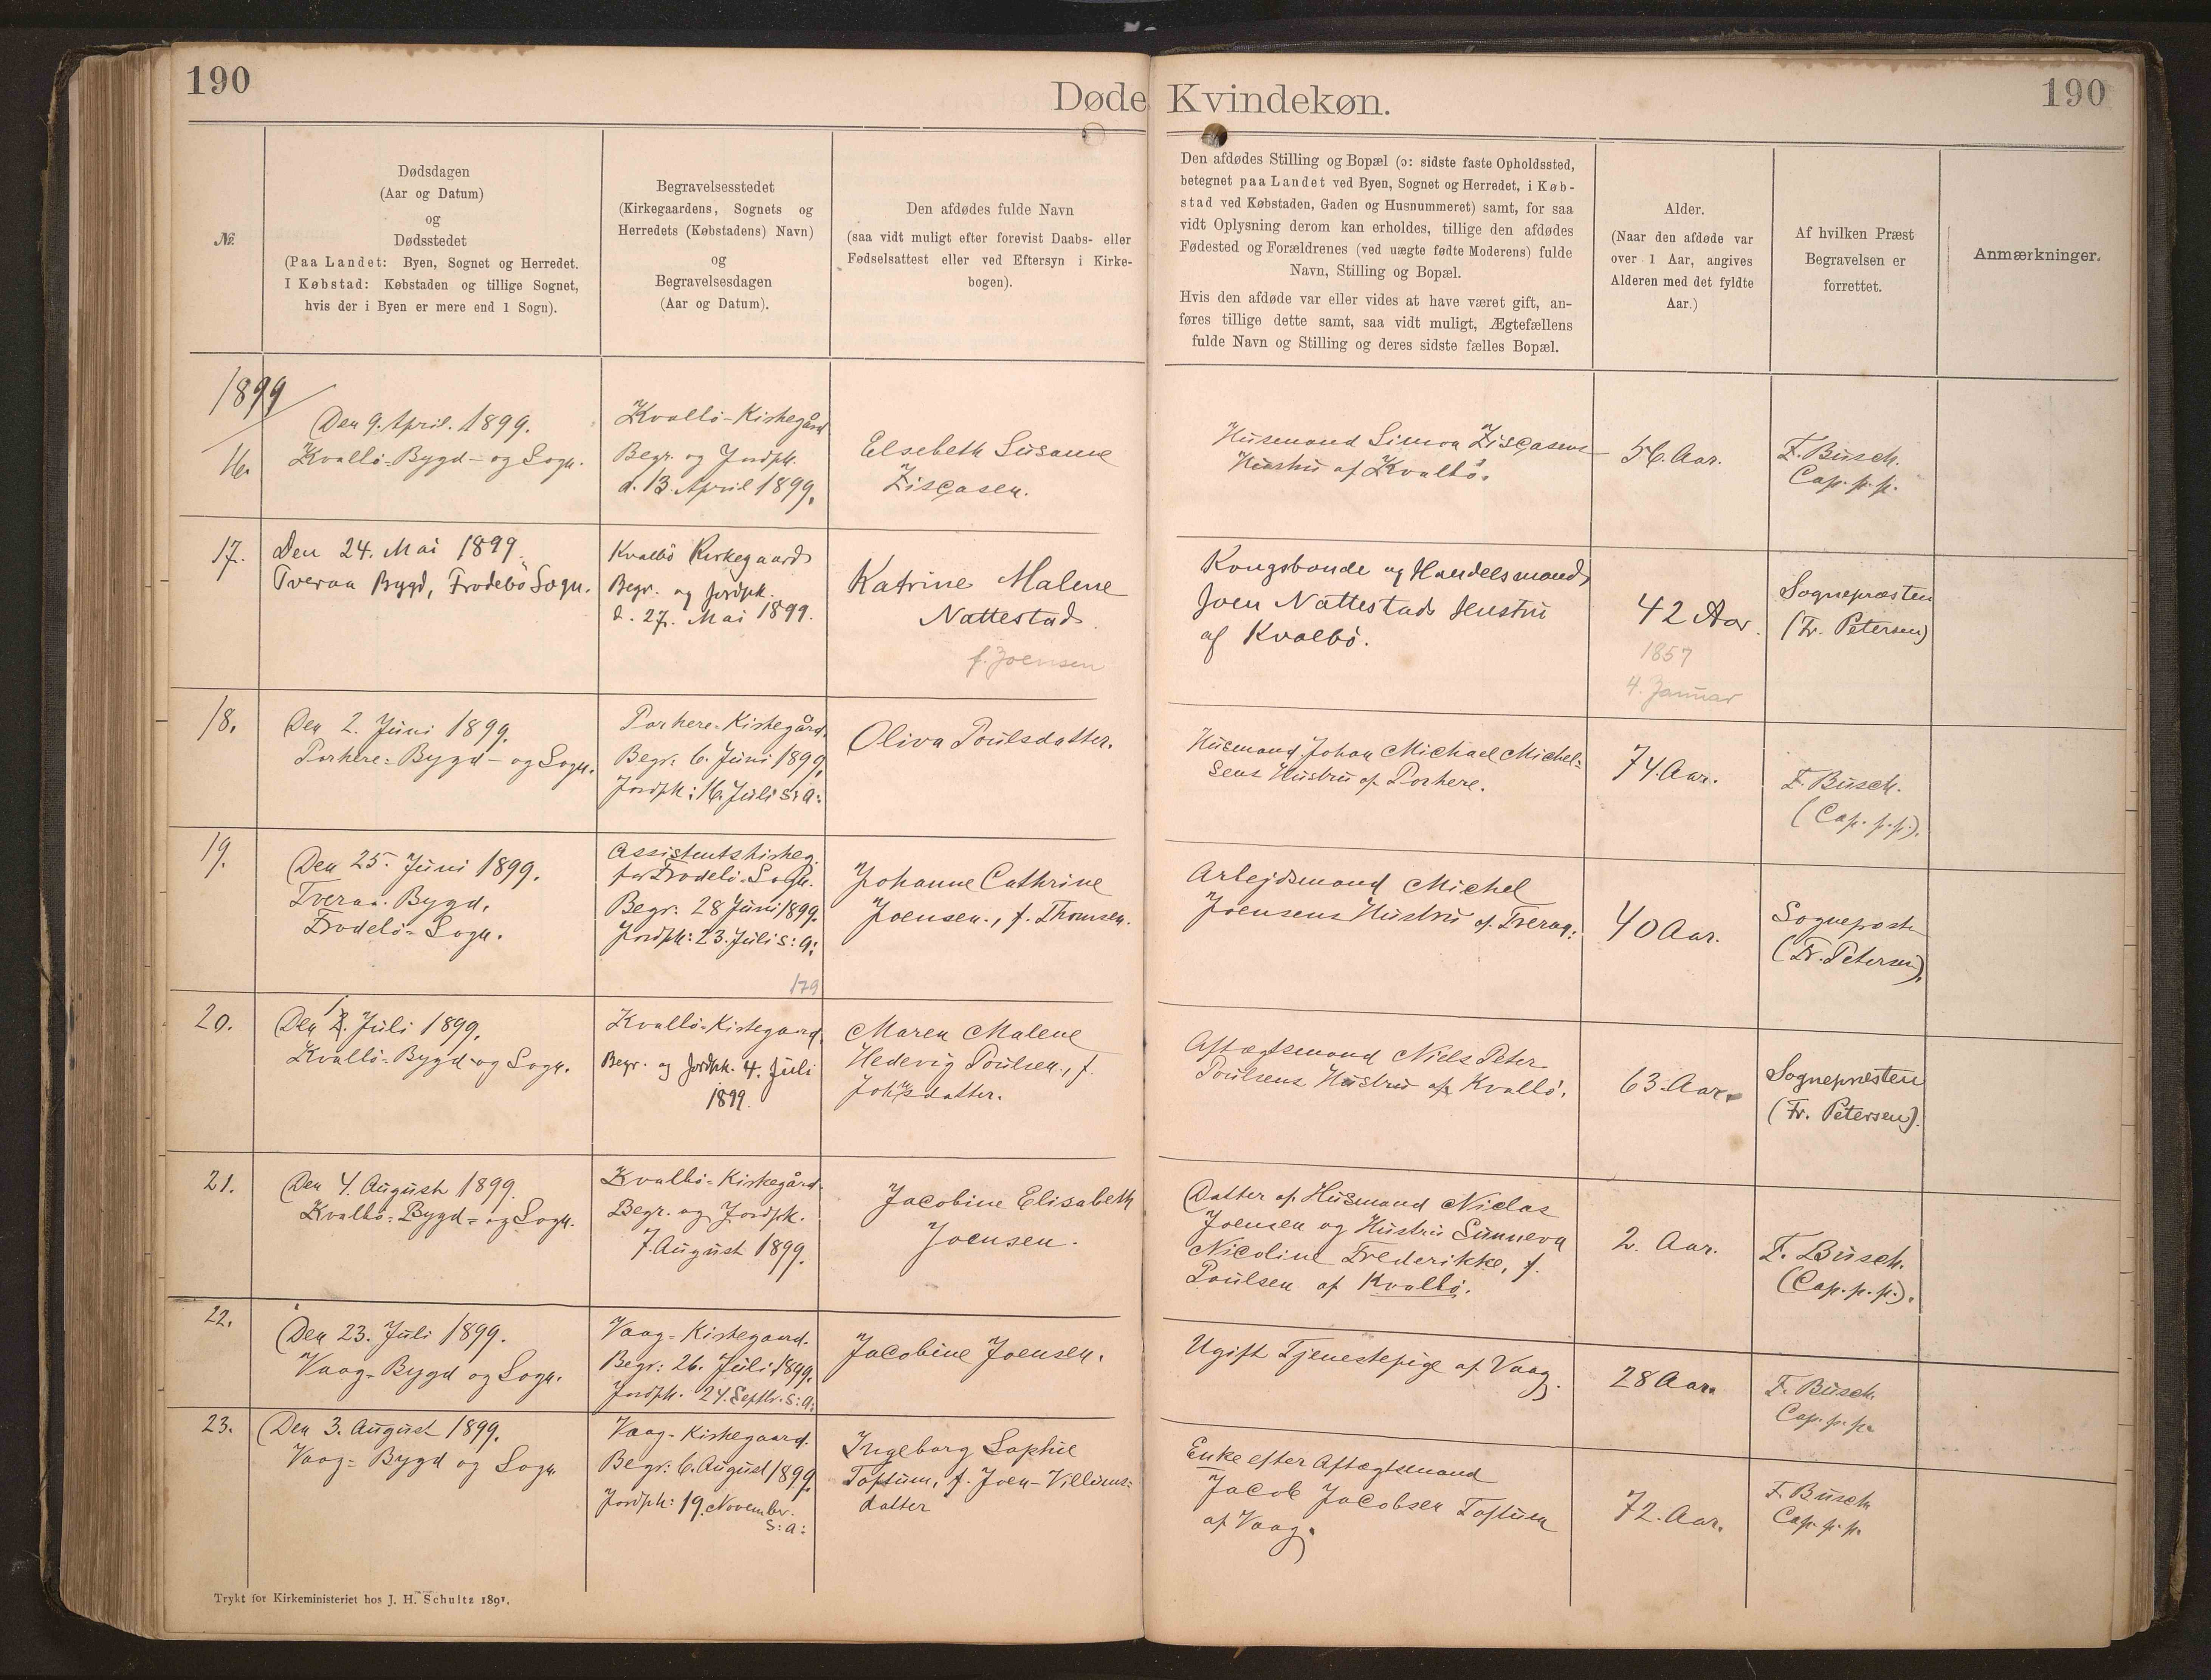 190
Døde Kvindekøn.
190
№
Dødsdagen
(Aar og Datum)
og
Dødsstedet
(Paa Landet: Byen, Sognet og Herredet.
I Købstad: Købstaden og tillige Sognet,
hvis der i Byen er mere end 1 Sogn).
Begravelsesstedet
(Kirkegaardens, Sognets og
Herredets (Købstadens) Navn)
og
Begravelsesdagen
(Aar og Datum).
Den afdødes fulde Navn
(saa vidt muligt efter forevist Daabs- eller
Fødselsattest eller ved Eftersyn i Kirke-
bogen).
Den afdødes Stilling og Bopæl (ɔ: sidste faste Opholdssted,
betegnet paa Landet ved Byen, Sognet og Herredet, i Køb-
stad ved Købstaden, Gaden og Husnummeret) samt, for saa
vidt Oplysning derom kan erholdes, tillige den afdødes
Fødested og Forældrenes (ved uægte fødte Moderens) fulde
Navn, Stilling og Bopæl.
Hvis den afdøde var eller vides at have været gift, an-
føres tillige dette samt, saa vidt muligt, Ægtefællens
fulde Navn og Stilling og deres sidste fælles Bopæl.
Alder.
(Naar den afdøde var
over 1 Aar, angives
Alderen med det fyldte
Aar.)
Af hvilken Præst
Begravelsen er
forrettet.
Anmærkninger.
1899
16.
Den 9. April. 1899.
Kvalbö-Bygd- og Sogn.
Kvalbö-Kirkegård
Begr. og Jordpk.
d. 13. April 1899.
Elsebeth Susanne
Ziscasen.
Husmand Simon Ziscasens
Hustru af Kvalbö.
56. Aar.
F. Busch.
Cap. p. p.
17.
Den 24. Mai 1899.
Tveraa Bygd, Frodebö Sogn.
Kvalbö Kirkegaard
Begr. og Jordpk.
d. 27. Mai 1899.
Katrine Malene
Nattestad.
f. Joensen
Kongsbonde og Handelsmand
Joen Nattestads Hustru
af Kvalbö.
42 Aar.
1857
4. Januar
Sognepræsten
(Fr. Petersen)
18.
Den 2. Juni 1899.
Porkere-Bygd- og Sogn.
Porkere-Kirkegård.
Begr: 6. Juni 1899.
Jordpk: 16. Juli s: a:
Oliva Poulsdatter.
Husmand Johan Michael Michel-
sens Hustru af Porkere.
74. Aar.
F. Busch.
(Cap. p. p.).
19.
Den 25. Juni 1899.
Tveraa. Bygd,
Frodebö-Sogn.
Assistentskirkeg.
for Frodebö-Sogn.
Begr: 28 Juni 1899.
Jordpk: 23. Juli s: a:
179
Johanne Cathrine
Joensen., f. Thomsen.
Arbejdsmand Michel
Joensens Hustru af Tveraa:
40 Aar.
Sognepræst
(Fr. Petersen).
20.
Den 1. Juli 1899.
Kvalbö-Bygd- og Sogn.
Kvalbö-Kirkegaard.
Begr. og Jordpk. 4. Juli
1899.
Maren Malene
Hedevig Poulsen., f.
Joh<sup>ns</sup>datter.
Aftægtsmand Niels Peter
Poulsens Hustru af Kvalbö.
63. Aar.
Sognepræsten
(Fr. Petersen).
21.
Den 4. August 1899.
Kvalbö-Bygd- og Sogn.
Kvalbö-Kirkegård.
Begr. og Jordpk.
7. August 1899.
Jacobine Elisabeth
Joensen.
Datter af Husmand Niclas
Joensen og Hustru Sunneva
Nicoline Frederikke, f.
Poulsen af Kvalbö.
2. Aar.
F. Busch.
(Cap. p. p.).
22.
Den 23. Juli 1899.
Vaag-Bygd og Sogn.
Vaag-Kirkegaard.
Begr: 26. Juli 1899.
Jordpk. 24. Septbr. s: a:
Jacobine Joensen.
Ugift Tjenestepige af Vaag.
28 Aar.
F. Busch.
Cap. p. p.
23.
Den 3. August 1899.
Vaag-Bygd og Sogn
Vaag-Kirkegaard.
Begr: 6. August 1899.
Jordpk: 19. November.
s: a:
Ingeborg Sophie
Toftum, f. Joen-Villums-
datter
Enke efter Aftægtsmand
Jacob Jacobsen Toftum
af Vaag.
72. Aar.
F. Busch
Cap. p. p.
Trykt for Kirkeministeriet hos J. H. Schultz 1891.